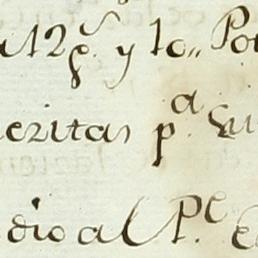 a 12 p.s y 10,, Po
ezitas p.a su
dio al P.e